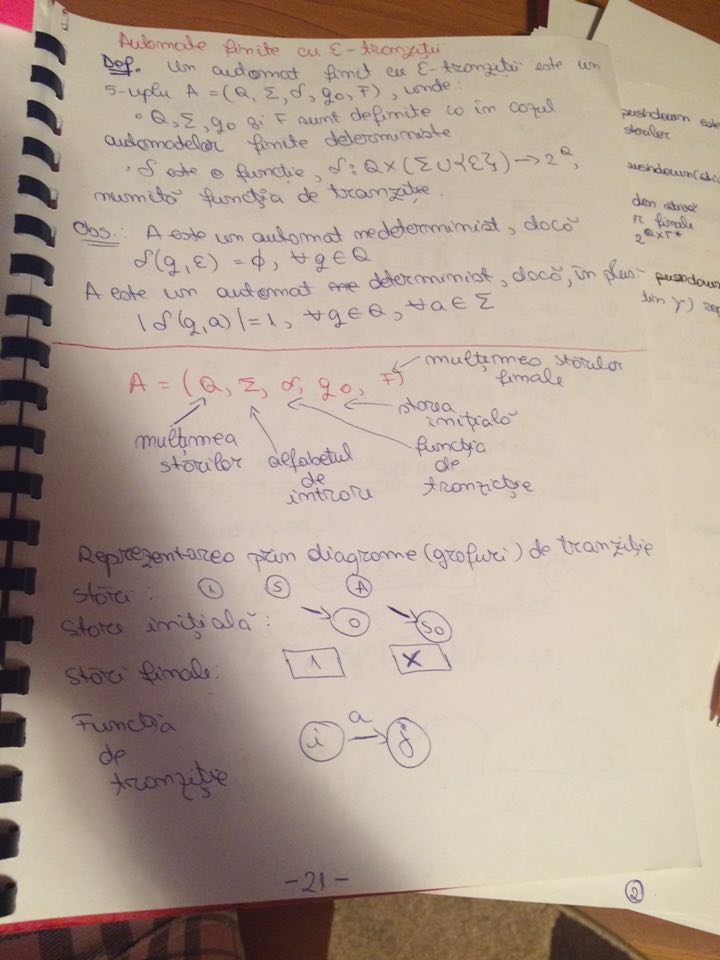 Automate finite cu ε-tranziții
Def. Un automat finit cu ε-tranziții este un
5-uplu A = (Q, Σ, δ, q0, F), unde:
• Q, Σ, q0 și F sunt definite ca în cazul
automatelor finite deterministe
• δ este o funcție, δ: Q×(Σ∪{ε}) → 2^Q,
numită funcția de tranziție.
Obs.: A este un automat nedeterminist, dacă
δ(q, ε) = ϕ, ∀q∈Q
A este un automat determinist, dacă, în plus
|δ(q,a)| = 1, ∀q∈Q, ∀a∈Σ
A = (Q, Σ, δ, q0, F)
mulțimea stărilor
finale
starea
inițială
funcția
de
tranziție
alfabetul
de
intrare
mulțimea
stărilor
Reprezentarea prin diagrame (grafuri) de tranziție
stări: 1 S A
stare inițială: 0 S0
stări finale: 1 X
Funcția
de
tranziție
i a j
-21-
2
pushdown este
stărilor
pushdown
din
finale
2^Q×Γ*
pushdown
din γ)